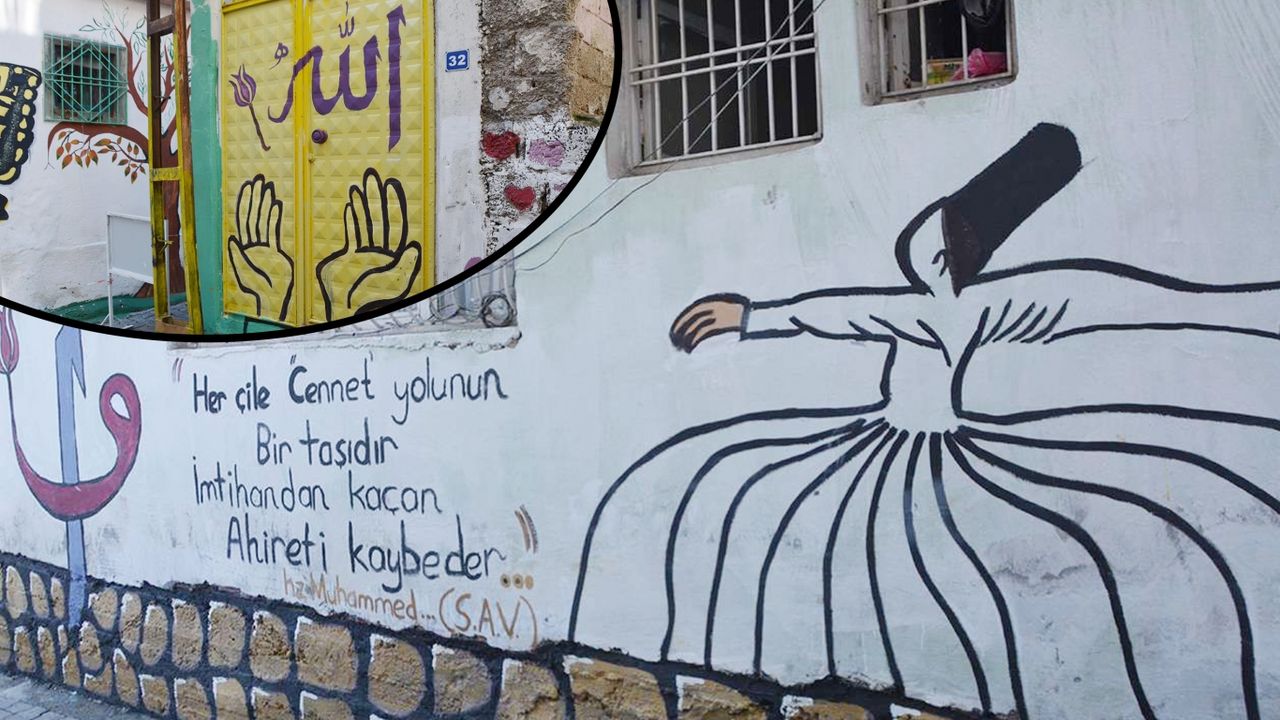 الله
32
"Her çile "Cennet" yolunun
Bir taşıdır
İmtihandan kaçan
Ahireti kaybeder..."
hz. Muhammed...(S.A.V.)